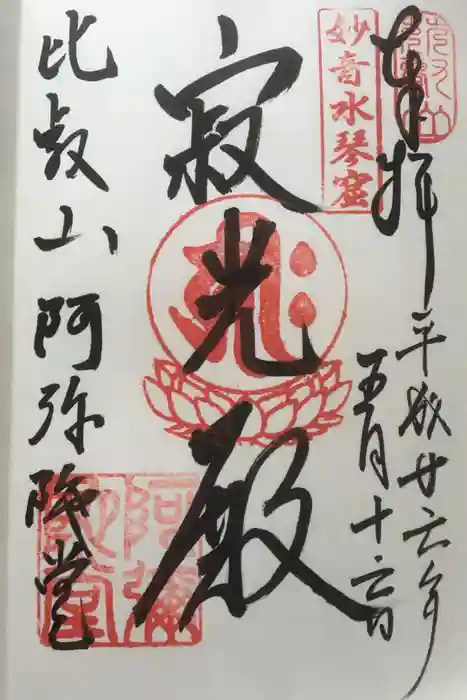 奉拝
平成廿六年
五月十六日
妙音水琴窟
寂光殿
比叡山 阿弥陀堂
阿彌陀堂